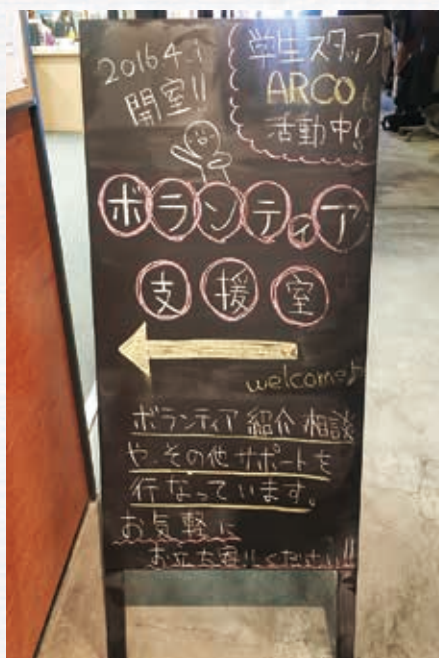 2016.4.1
開室!!
学生スタッフ
ARCOも
活動中!!
ボランティア
支援室
welcome♪
ボランティア紹介相談
や その他サポートを
行なっています。
お気軽に
お立ち寄りください!!